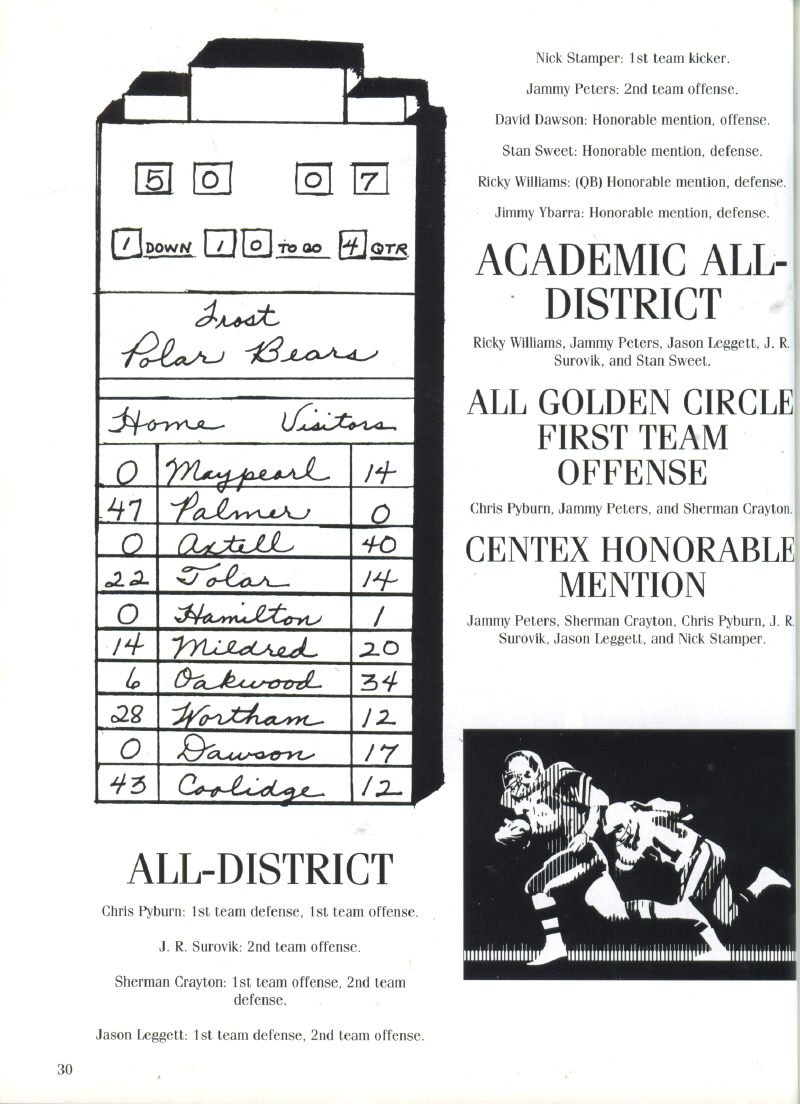 5 0 0 7
1 DOWN 1 0 TO GO 4 QTR
Frost
Polar Bears
Home Visitors
0 Maypearl 14
47 Palmer 0
0 Axtell 40
22 Tolar 14
0 Hamilton 1
14 Mildred 20
6 Oakwood 34
28 Wortham 12
0 Dawson 17
43 Coolidge 12
ALL-DISTRICT
Chris Pyburn: 1st team defense, 1st team offense.
J. R. Surovik: 2nd team offense.
Sherman Crayton: 1st team offense, 2nd team
defense.
Jason Leggett: 1st team defense, 2nd team offense.
30
Nick Stamper: 1st team kicker.
Jammy Peters: 2nd team offense.
David Dawson: Honorable mention, offense.
Stan Sweet: Honorable mention, defense.
Ricky Williams: (QB) Honorable mention, defense.
Jimmy Ybarra: Honorable mention, defense.
ACADEMIC ALL-
DISTRICT
Ricky Williams, Jammy Peters, Jason Leggett, J. R.
Surovik, and Stan Sweet.
ALL GOLDEN CIRCLE
FIRST TEAM
OFFENSE
Chris Pyburn, Jammy Peters, and Sherman Crayton.
CENTEX HONORABLE
MENTION
Jammy Peters, Sherman Crayton, Chris Pyburn, J. R.
Surovik, Jason Leggett, and Nick Stamper.